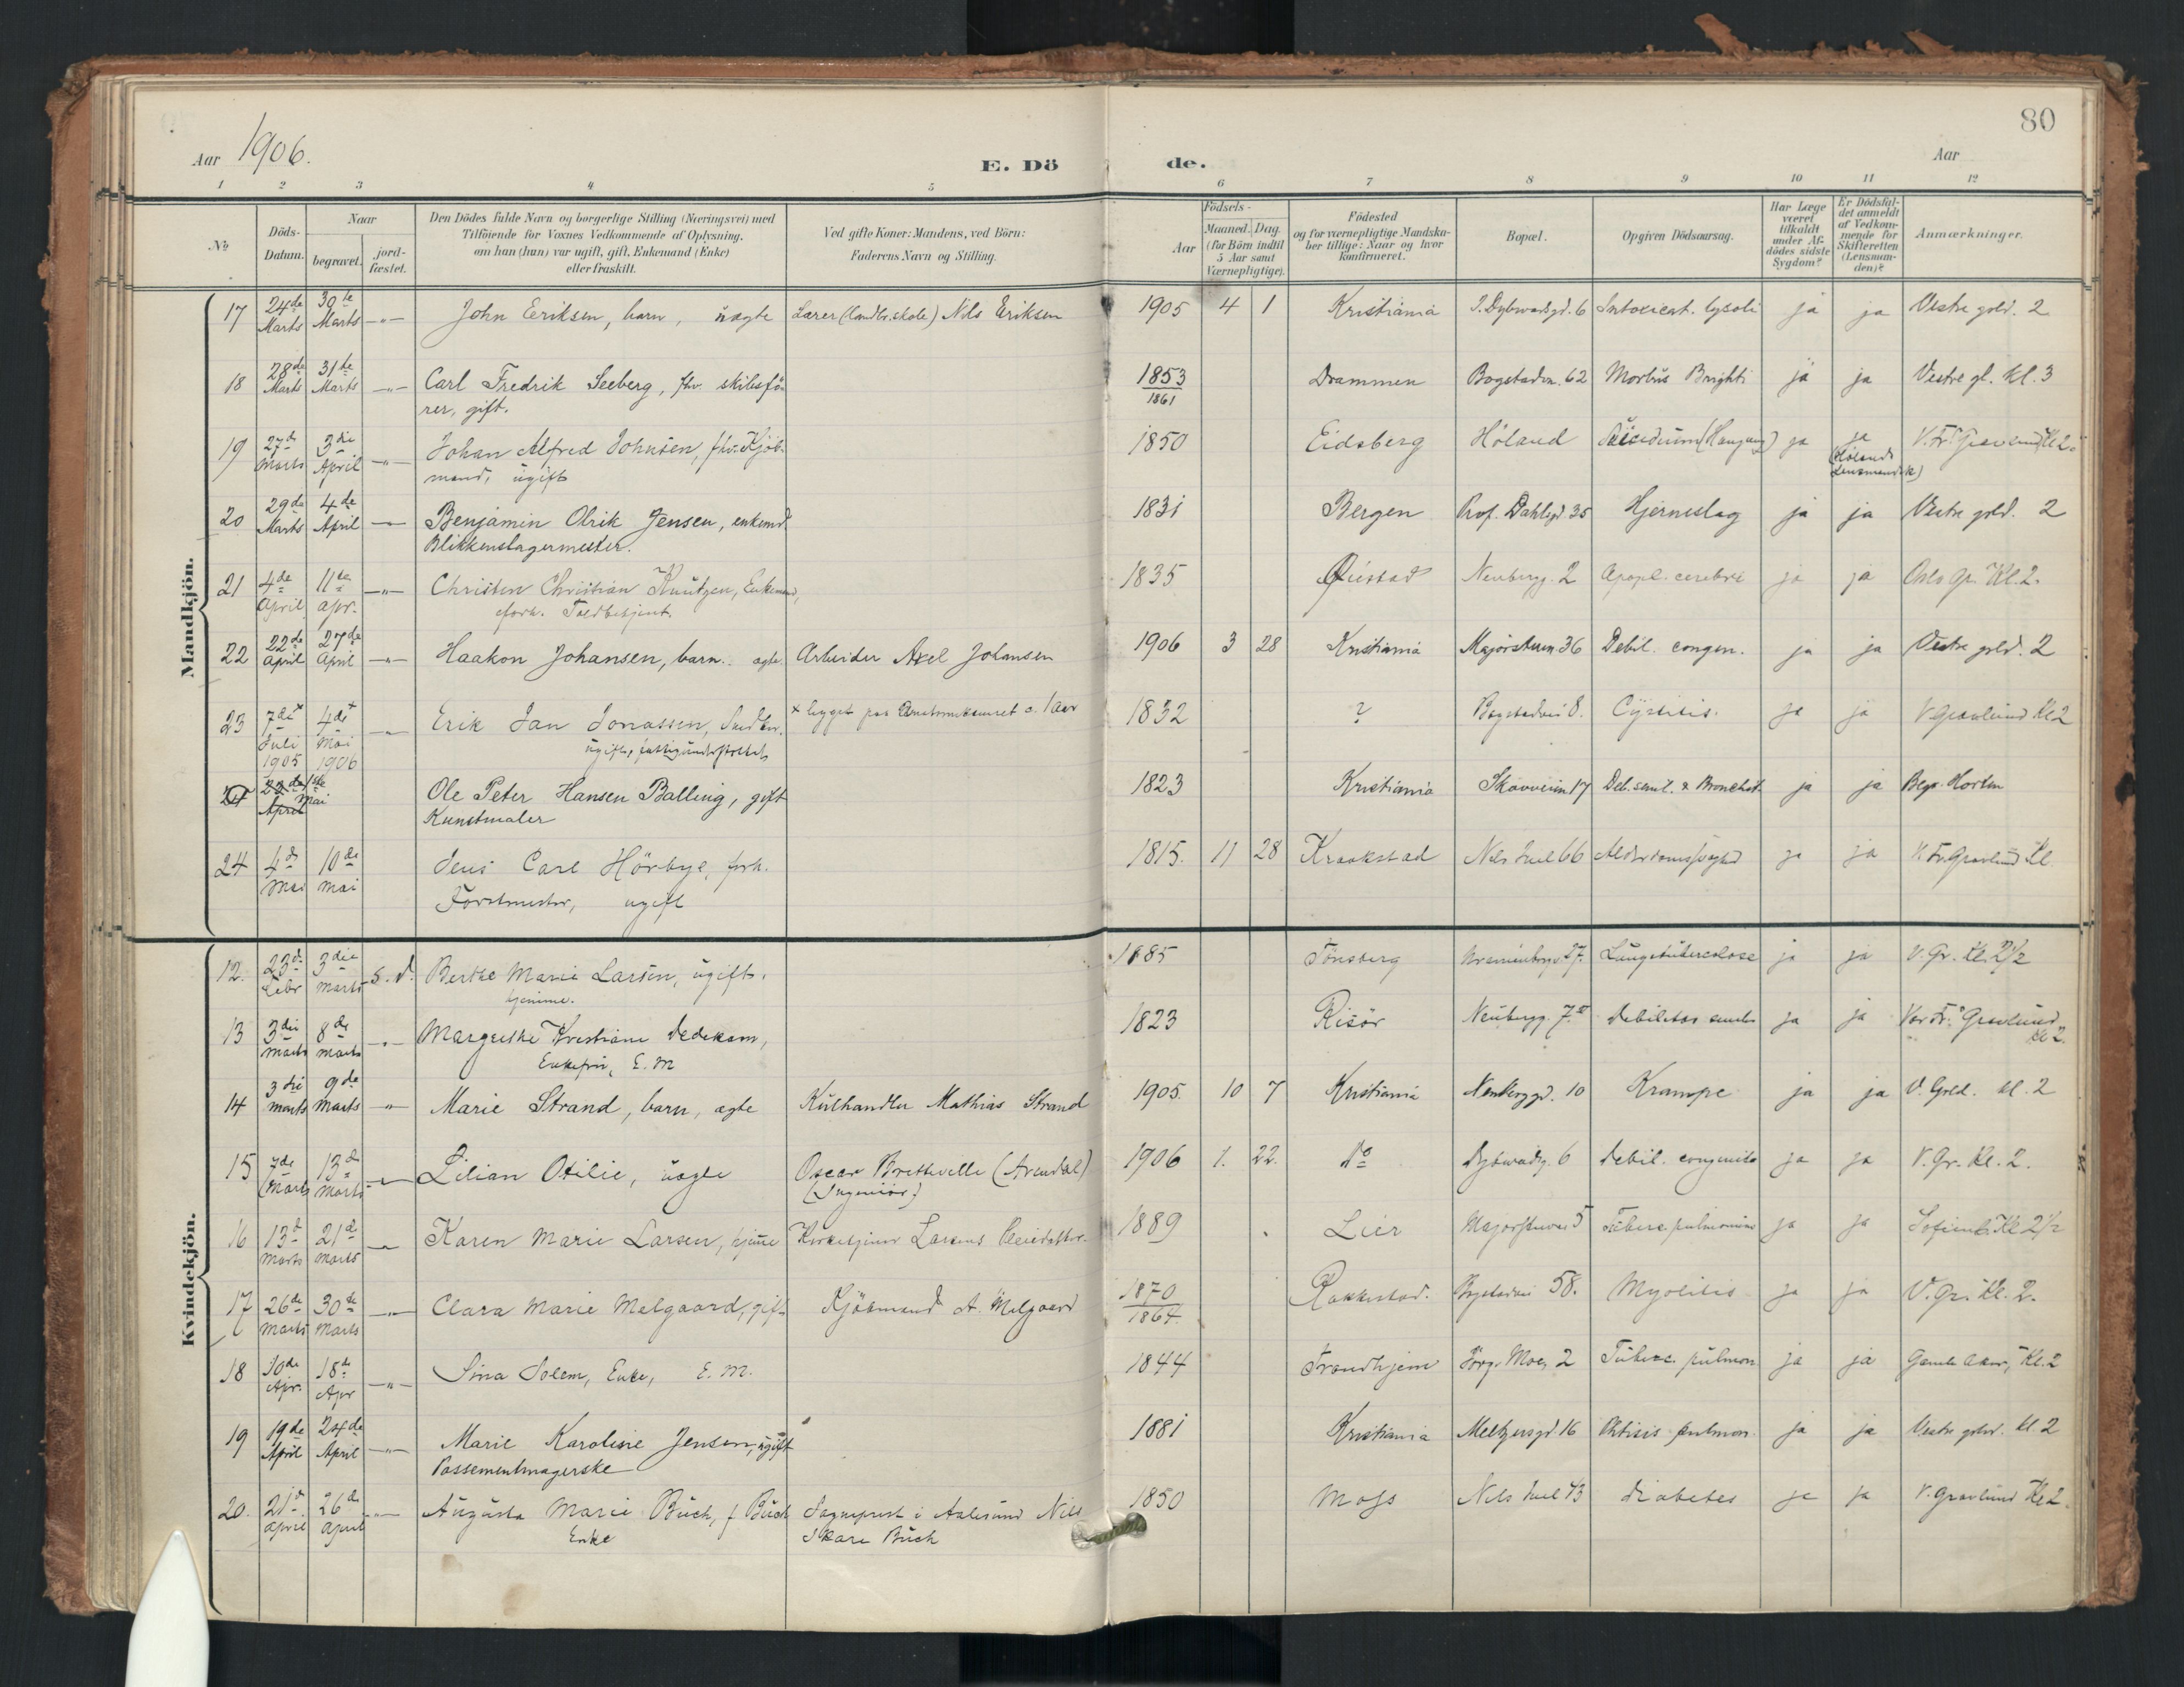 80
Aar 1906.
E. Dö de.
Aar
1 2 3 4 5 6 7 8 9 10 11 12
No
Döds-Datum.
Naar
begravet.
jord-fæstet.
Den Dödes fulde Navn og borgerlige Stilling (Næringsvei) med
Tilföiende for Voxnes Vedkommende af Oplysning.
om han (hun) var ugift, gift, Enkemand (Enke)
eller fraskilt.
Ved gifte Koner: Mandens, ved Börn:
Faderens Navn og Stilling.
Födsels-
Aar
Maaned. Dag.
(for Börn indtil
5 Aar samt
Værnepligtige).
Födested
og for værnepligtige Mandska-
ber tillige: Naar og hvor
konfirmeret.
Bopæl.
Opgiven Dödsaarsag.
Har Læge
været
tilkaldt
under Af-
dödes sidste
Sygdom?
Er Dödsfal-
det anmeldt
af Vedkom-
mende for
Skifteretten
(Lensman-
den)?
Anmærkninger.
Mandkjön.
17 24de Marts 30te Marts -"- John Eriksen, barn, uægte Lærer (Landbr.skole) Nils Eriksen 1905 4 1 Kristiania J. Dybwadsgd. 6 Intoxicat. lysoli ja ja Vestre gvld. 2
18 28de Marts 31te Marts -"- Carl Fredrik Seeberg, fhv. skibsfö-
rer, gift. 1853
1861 Drammen Bogstadvn. 62 Morbus Brighti ja ja Vestre gl. Kl. 3
19 27de Marts 3die April -"- Johan Alfred Johnsen, fhv. Kjöb-
mand, ugift 1850 Eidsberg Höland Suicidium (Hængng) ja ja
(Hölands
Lensmandsk) V. Fr. Gravlund Kl 2.
20 29de Marts 4de April -"- Benjamin Olrik Jensen, enkemd.
Blikkenslagermester. 1831 Bergen Prof. Dahlsgd 35 Hjerneslag ja ja Vestre gvld. 2
21 4de April 11te Apr. -"- Christen Christian Knutzen, Enkemand,
forh. Toldbetjent. 1835 Neuberg. 2 Apopl. cerebri ja ja Oslo Gr. Kl. 2.
22 22de April 27de April -"- Haakon Johansen, barn. ægte Arbeider Axel Johansen 1906 3 28 Kristiania Majorstuen 36 Debil. congen. ja ja Vestre gvld. 2
23 7de + Juli 1905 4de + Mai 1906 -"- Erik Jan Jonassen,
ugift, fattigunderstöttet + ligget paa c. 1 aar 1832 ? Bogstadvei 8. Cystitis. ja ja V Gravlund Kl 2
24 22de April 1ste Mai Ole Peter Hansen Balling, gift
Kunstmaler 1823 Kristiania Skovveien 17 Deb. senil. & Bronchit. ja ja Begr. Horten
24 4de Mai 10de Mai Jens Carl Hörbye, forh.
Forstmester, ugift 1815. 11 28 Kraakstad Nils Juel 66 ja ja V. Fr. Gravlund Kl.
Kvindekjön.
12. 23d. Febr 3die Marts s. d. Berthe Marie Larsen, ugift.
hjemme. 1885 Tönsberg Lungetuberculose ja ja V. Gr. Kl. 2½
13 3die Marts 8de Marts -"- Margrethe Kristiane Dedekam,
Enkefru, E. M 1823 Risör Neubergg. 7 Debilitas senilis ja ja Vor Fr. Gravlund
Kl 2.
14 3die Marts 9de Marts -"- Marie Strand, barn, ægte Kulhandler Mathias Strand 1905. 10 7 Kristiania Neuberggd. 10 Krampe ja ja V. Gvld. kl. 2
15 7de Marts 13d Marts -"- Lilian Otilie, uægte Oscar Bretteville (Arendal)
(Ingeniör) 1906 1. 22. do Dybwadg. 6 Debil. congenita ja ja V. Gr. Kl. 2.
16 13d Marts 21d Marts -"- Karen Marie Larsen, hjeme Kirketjener Larsens 1889 Lier Majorstuvei 5 Tuberc. pulmonum ja ja Sofienb. Kl 2½
17 26de Marts 30te Marts -"- Clara Marie Melgaard, gift Kjöbmand A. Melgaard 1870
1864. Rakkestad. Bogstadvei 58. Myelitis ja ja V. Gr. Kl. 2.
18 10de Apr. 18de Apr -"- Sina Solem, Enke, E. M. 1844 Trondhjem Jörg. Moes 2 Tuberc. pulmon ja ja Gamle Aker, Kl. 2
19 19de April 24de April -"- Marie Karoline Jensen, ugift
Possementmagerske 1881 Kristiania Meltzersgd. 16 Phtisis pulmon. ja ja Vestre gvld. kl. 2
20. 21d. April 26d. April -"- Augusta Marie Buch, f Buch
Enke Sogneprest i Aalesund Nils
Skare Buch 1850 Moss Nils Juel 43 Diabetes ja ja V. Gravlund Kl 2.